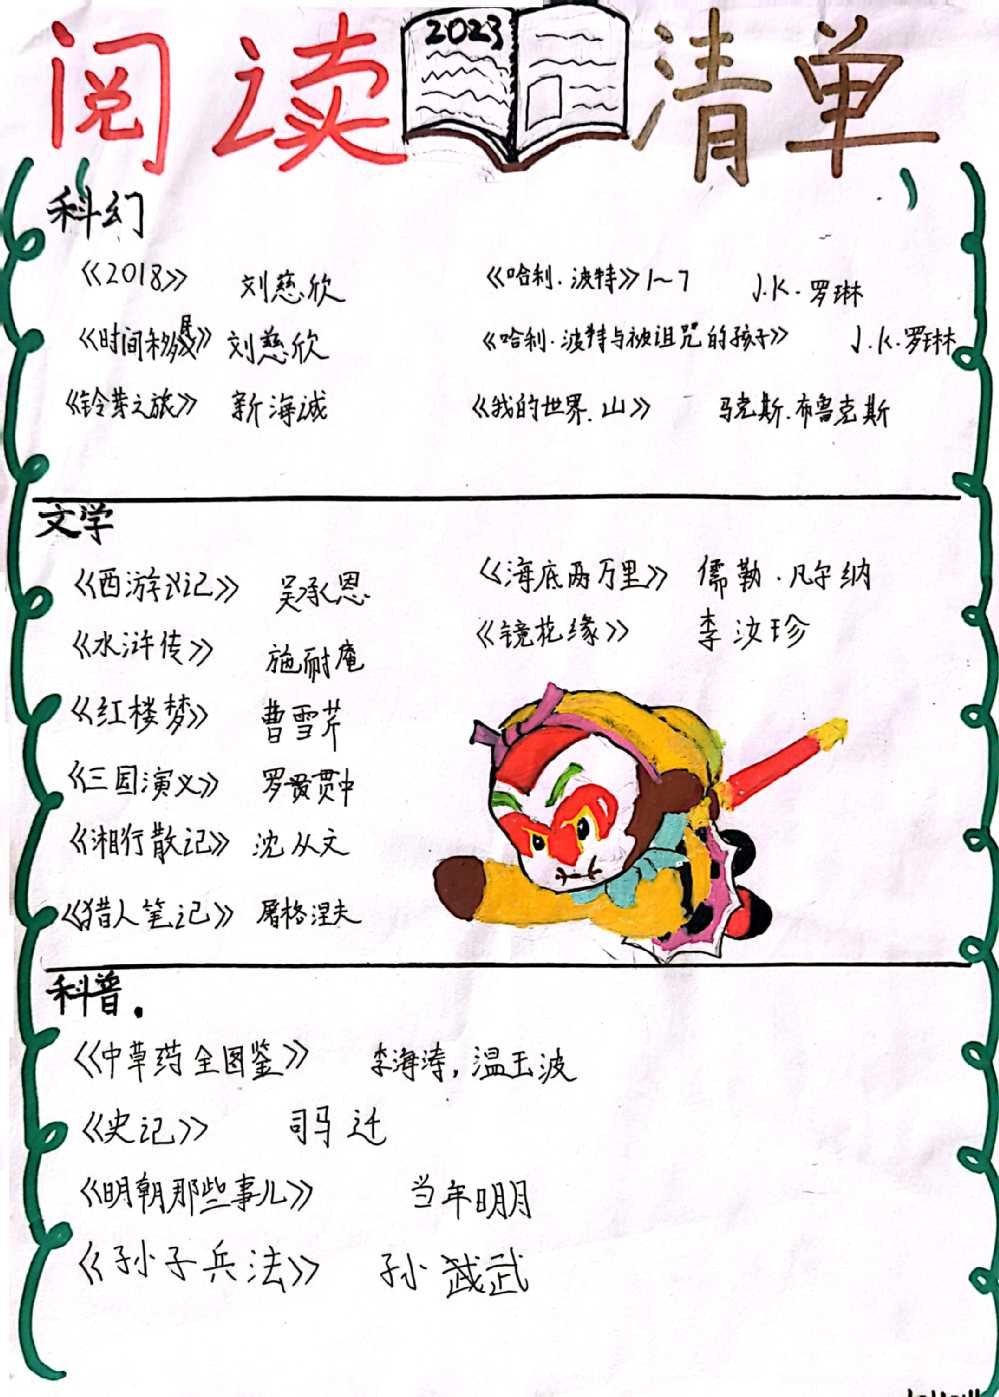 阅读 2023 清单
科幻
《2018》 刘慈欣
《时间移民》 刘慈欣
《铃芽之旅》 新海诚
《哈利.波特》1~7 J.K.罗琳
《哈利.波特与被诅咒的孩子》 J.K.罗琳
《我的世界.山》 马克斯.布鲁克斯
文学
《西游记》 吴承恩
《水浒传》 施耐庵
《红楼梦》 曹雪芹
《三国演义》 罗贯中
《湘行散记》 沈从文
《猎人笔记》 屠格涅夫
《海底两万里》 儒勒.凡尔纳
《镜花缘》 李汝珍
科普.
《中草药全图鉴》 李海涛,温玉波
《史记》 司马迁
《明朝那些事儿》 当年明月
《孙子兵法》 孙武